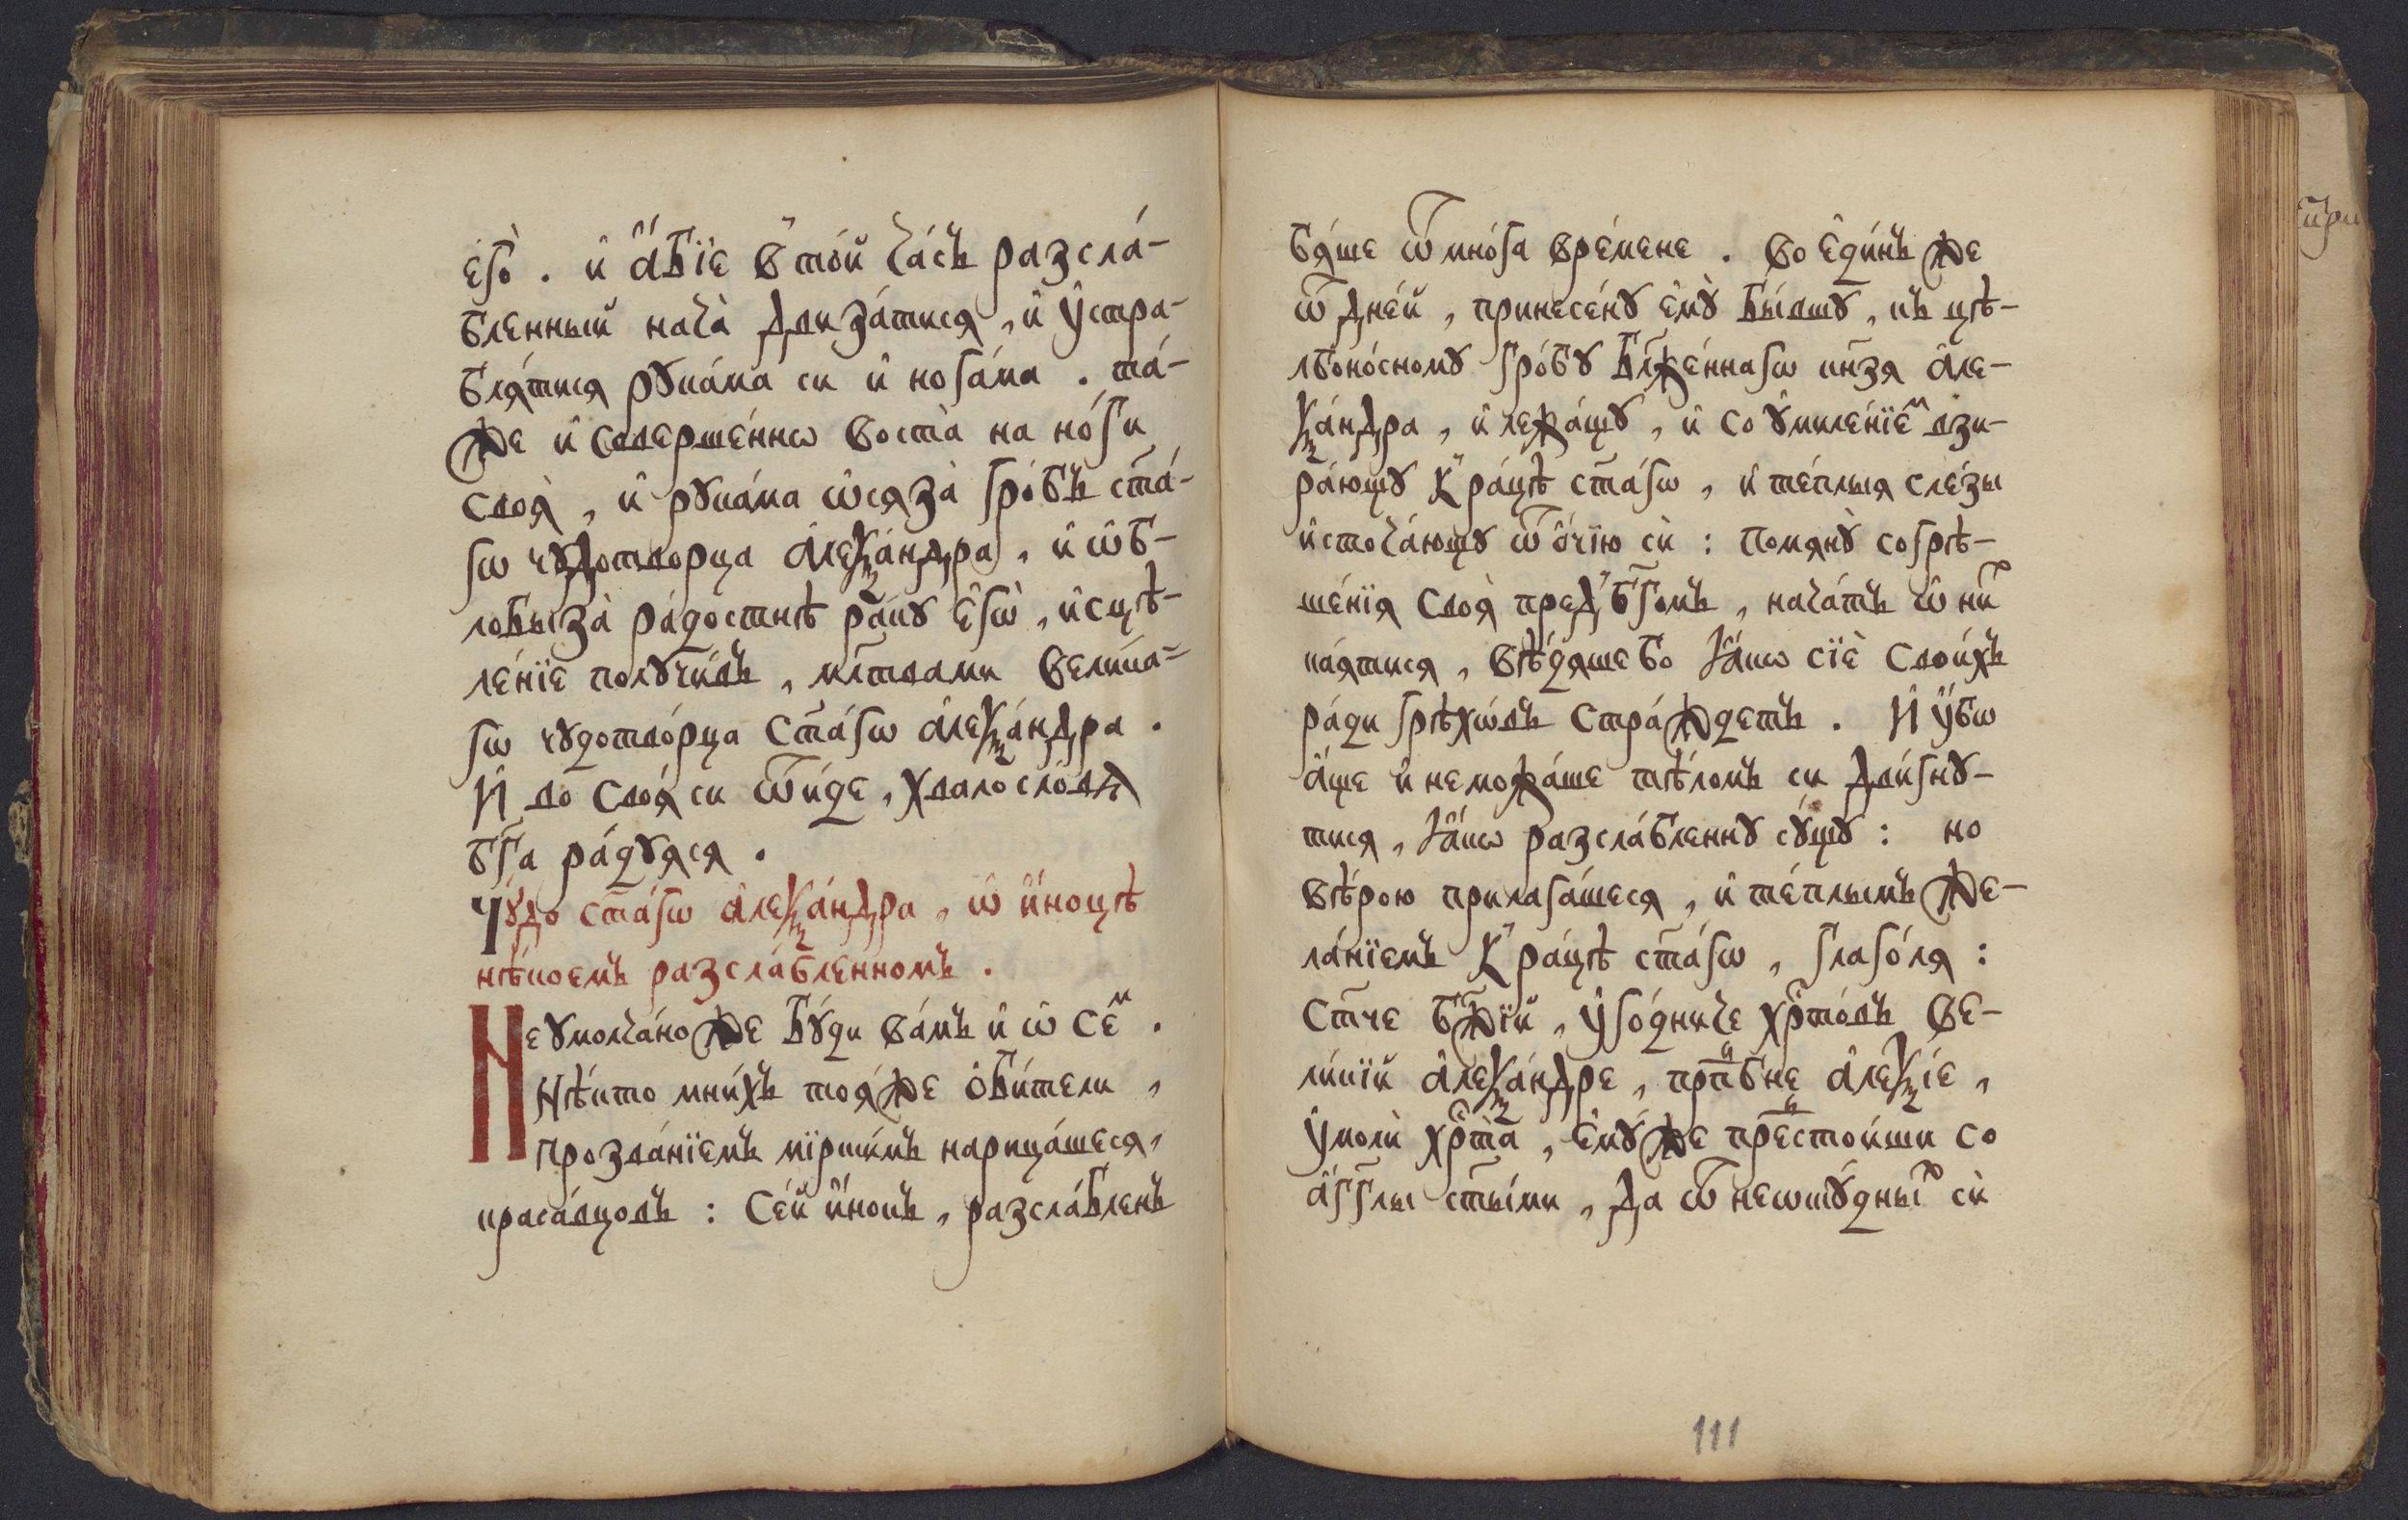 є҆гѡ̀ . и҆ а҆́бїе в̾ той ча́съ разсла́-
бленный нача̀ двиза́тися , и҆ у҆стра-
бля́тися рꙋка́ма си и҆ нога́ма . та́-
же и҆ соверше́ннѡ воста̀ на но́ги
своя̀ , и҆ рꙋка́ма ѡ҆сяза̀ гро́бъ ст҃а́-
гѡ чꙋдотворца а҆леѯа́ндра , и҆ ѡ҆б-
лобыза̀ ра́достнѣ ра́кꙋ є҆гѡ̀ , и҆сцѣ-
ле́нїе полꙋчи́въ , мл҃твами вели́ка-
гѡ чꙋдотво́рца ст҃а́гѡ а҆леѯа́ндра .
И҆ во своя́ си ѿи́де , хвалосло́вѧ
бг҃а ра́дꙋяся .
Чꙋ́до ст҃а́гѡ а҆леѯа́ндра , ѡ҆ и҆́ноцѣ
нѣ́коемъ разсла́бленномъ .
Неꙋмолча́но же бꙋ́ди ва́мъ и҆ ѡ҆ се́м .
Нѣ́кто мни́хъ тоя́же ѻ҆би́тели ,
прозва́нїемъ мїрски́мъ нарица́шеся ,
краса́вцовъ : Се́й и҆́нокъ , разсла́бленъ
бя́ше ѿ мно́га вре́мене . Во є҆ди́нъ же
ѿ дне́й , принесе́нꙋ є҆мꙋ̀ бы́вшꙋ , къ цѣ-
льбоно́сномꙋ гро́бꙋ бл҃же́ннагѡ кн҃зя а҆ле-
ѯа́ндра , и҆ лежа́щꙋ , и҆ со ᲂу҆миле́нїем взи-
ра́ющꙋ к̾ ра́цѣ ст҃а́гѡ , и҆ те́плыя сле́зы
и҆сточа́ющꙋ ѿ ѻ҆́чїю сѝ : помянꙋ̀ согрѣ-
ше́нїя своя̀ пред̾ бг҃омъ , нача́тъ ѡ҆ них
ка́ятися , вѣ́дяше бо ꙗ҆́кѡ сїѐ свои́хъ
ра́ди грѣхѡ́въ стра́ждетъ . И҆ у҆́бѡ
а҆́ще и҆ неможа́ше тѣ́ломъ си дви́гнꙋ-
тися , ꙗ҆́кѡ разсла́бленнꙋ сꙋ́щꙋ : но
вѣ́рою прилага́шеся , и҆ те́плымъ же-
ла́нїемъ к̾ ра́цѣ ст҃а́гѡ , глаго́ля :
Ст҃че бж҃їй , у҆го́дниче хр҃то́въ ве-
ли́кїй а҆леѯа́ндре , прпⷣбне а҆леѯі́е ,
у҆молѝ хр҃та̀ , є҆мꙋ́же предстои́ши со
а҆́гг҃лы ст҃ы́ми , да ѿ неѡтꙋ́дных сѝ
111